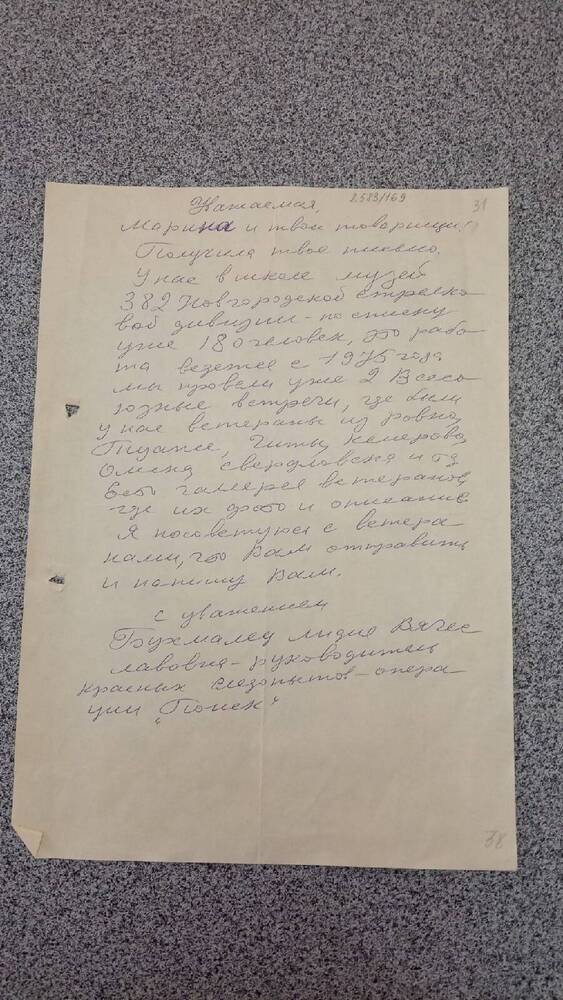 8583/169 31
Уважаемая,
Марина и твои товарищи!
Получила твое письмо.
У нас в школе музей
382 Новгородской стрелко-
вой дивизии - по списку
уже 180 человек, это рабо-
та ведется с 1975 года
мы провели уже 2 Всесо-
юзные встречи, где были
у нас ветераны из Ровно,
Читы, Кемерова,
Омска, Свердловска и тд
Есть галлерея ветеранов
где их фото и описание
Я посоветуюсь с ветера-
нами, что Вам отправить
и напишу Вам.
с уважением
Лидия Вячес
лавовна - руководитель
красных следопытов - опера
ции "Поиск"
38